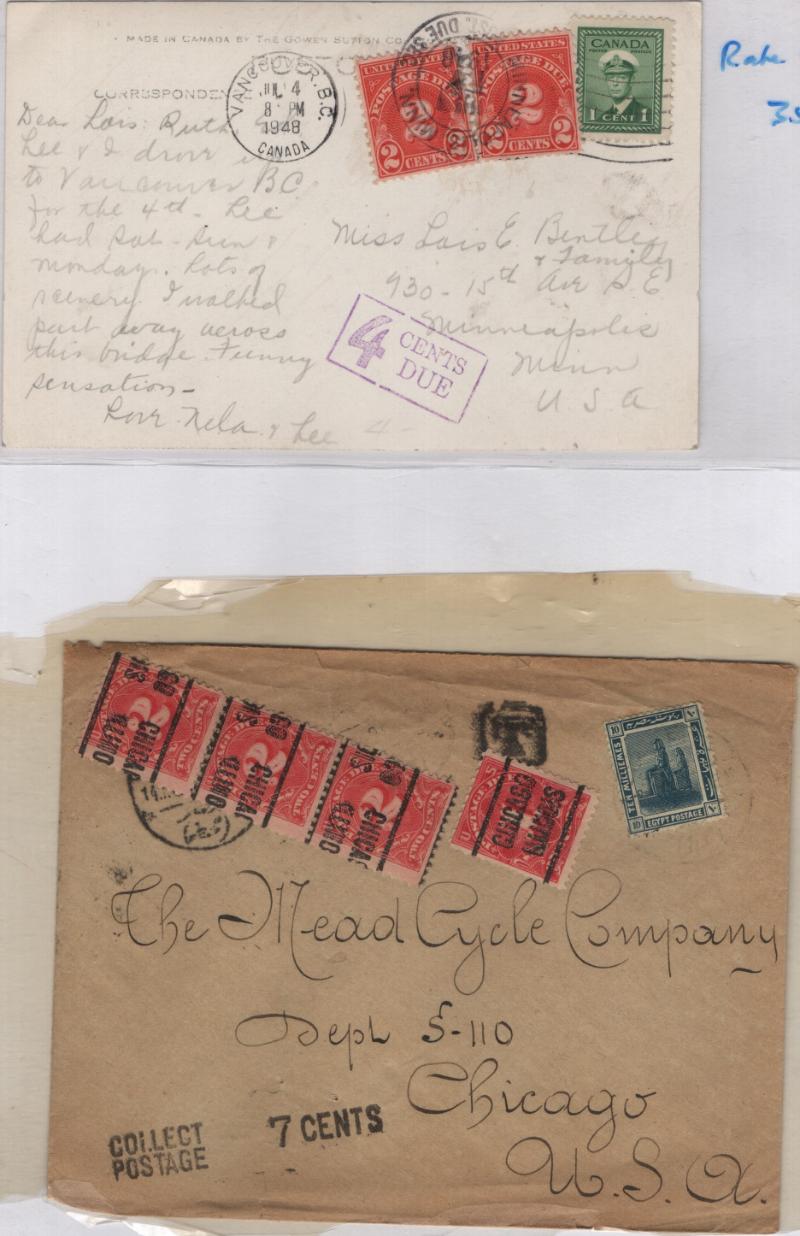 MADE IN CANADA BY THE GOWEN SUTTON CO
CORRESPONDEN
VANCOUVER, B.C.
JUL 4
8 PM
1948
CANADA
UNITED STATES
POSTAGE DUE
2
2 CENTS 2
UNITED STATES
POSTAGE DUE
2
2 CENTS 2
CANADA
POSTES POSTAGE
1 CENT 1
Rate
Dear Lois: Ruth
Lee & I drove
to Vancouver BC
for the 4th. Lee
had Sat - Sun &
Monday. Lots of
scenery. I walked
part way across
this bridge. Funny
sensation -
Love Nela & Lee
Miss Lois E. Bentley
& Family
930 - 15th Ave S.E
Minneapolis
Minn
U S A
4 CENTS
DUE
4 -
2
TWO CENTS
CHICAGO
ILLINOIS
2
TWO CENTS
CHICAGO
2
TWO CENTS
CHICAGO
CHICAGO
T
10 10
TEN MILLIEMES
EGYPT POSTAGE
The Mead Cycle Company
Dept S-110
Chicago
U.S.A.
COLLECT
POSTAGE
7 CENTS